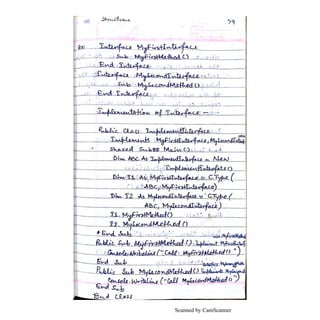 Structure 79
Interface MyFirstInterface
Sub MyFirstMethod()
End Interface
Interface MySecondInterface
Sub MySecondMethod()
End Interface
Implementation of Interface
Public Class ImplementInterface
Implements MyFirstInterface, MySecondInterface
Shared Sub Main()
Dim ABC As ImplementInterface = New
ImplementInterface()
Dim I1 As MyFirstInterface = CType(
ABC, MyFirstInterface)
Dim I2 As MySecondInterface = CType(
ABC, MySecondInterface)
I1. MyFirstMethod()
I2. MySecondMethod()
End Sub
Public Sub MyFirstMethod() Implements
Console.WriteLine("Call MyFirstMethod")
End Sub
Public Sub MySecondMethod()
Console.WriteLine("Call MySecondMethod")
End Sub
End Class
Scanned by CamScanner